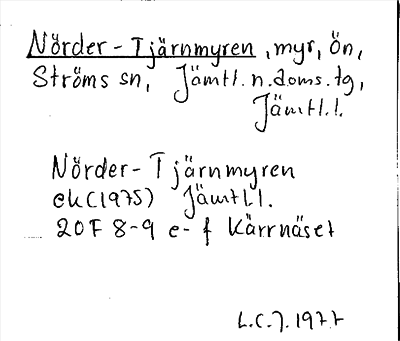 Nörder-Tjärnmyren, myr, Ön,
Ströms sn, Jämtl. n. doms. tg,
Jämtl. l.
Nörder-Tjärnmyren
ek (1975) Jämtl l.
20F 8-9 e-f Kärrnäset
L.C.J. 1977